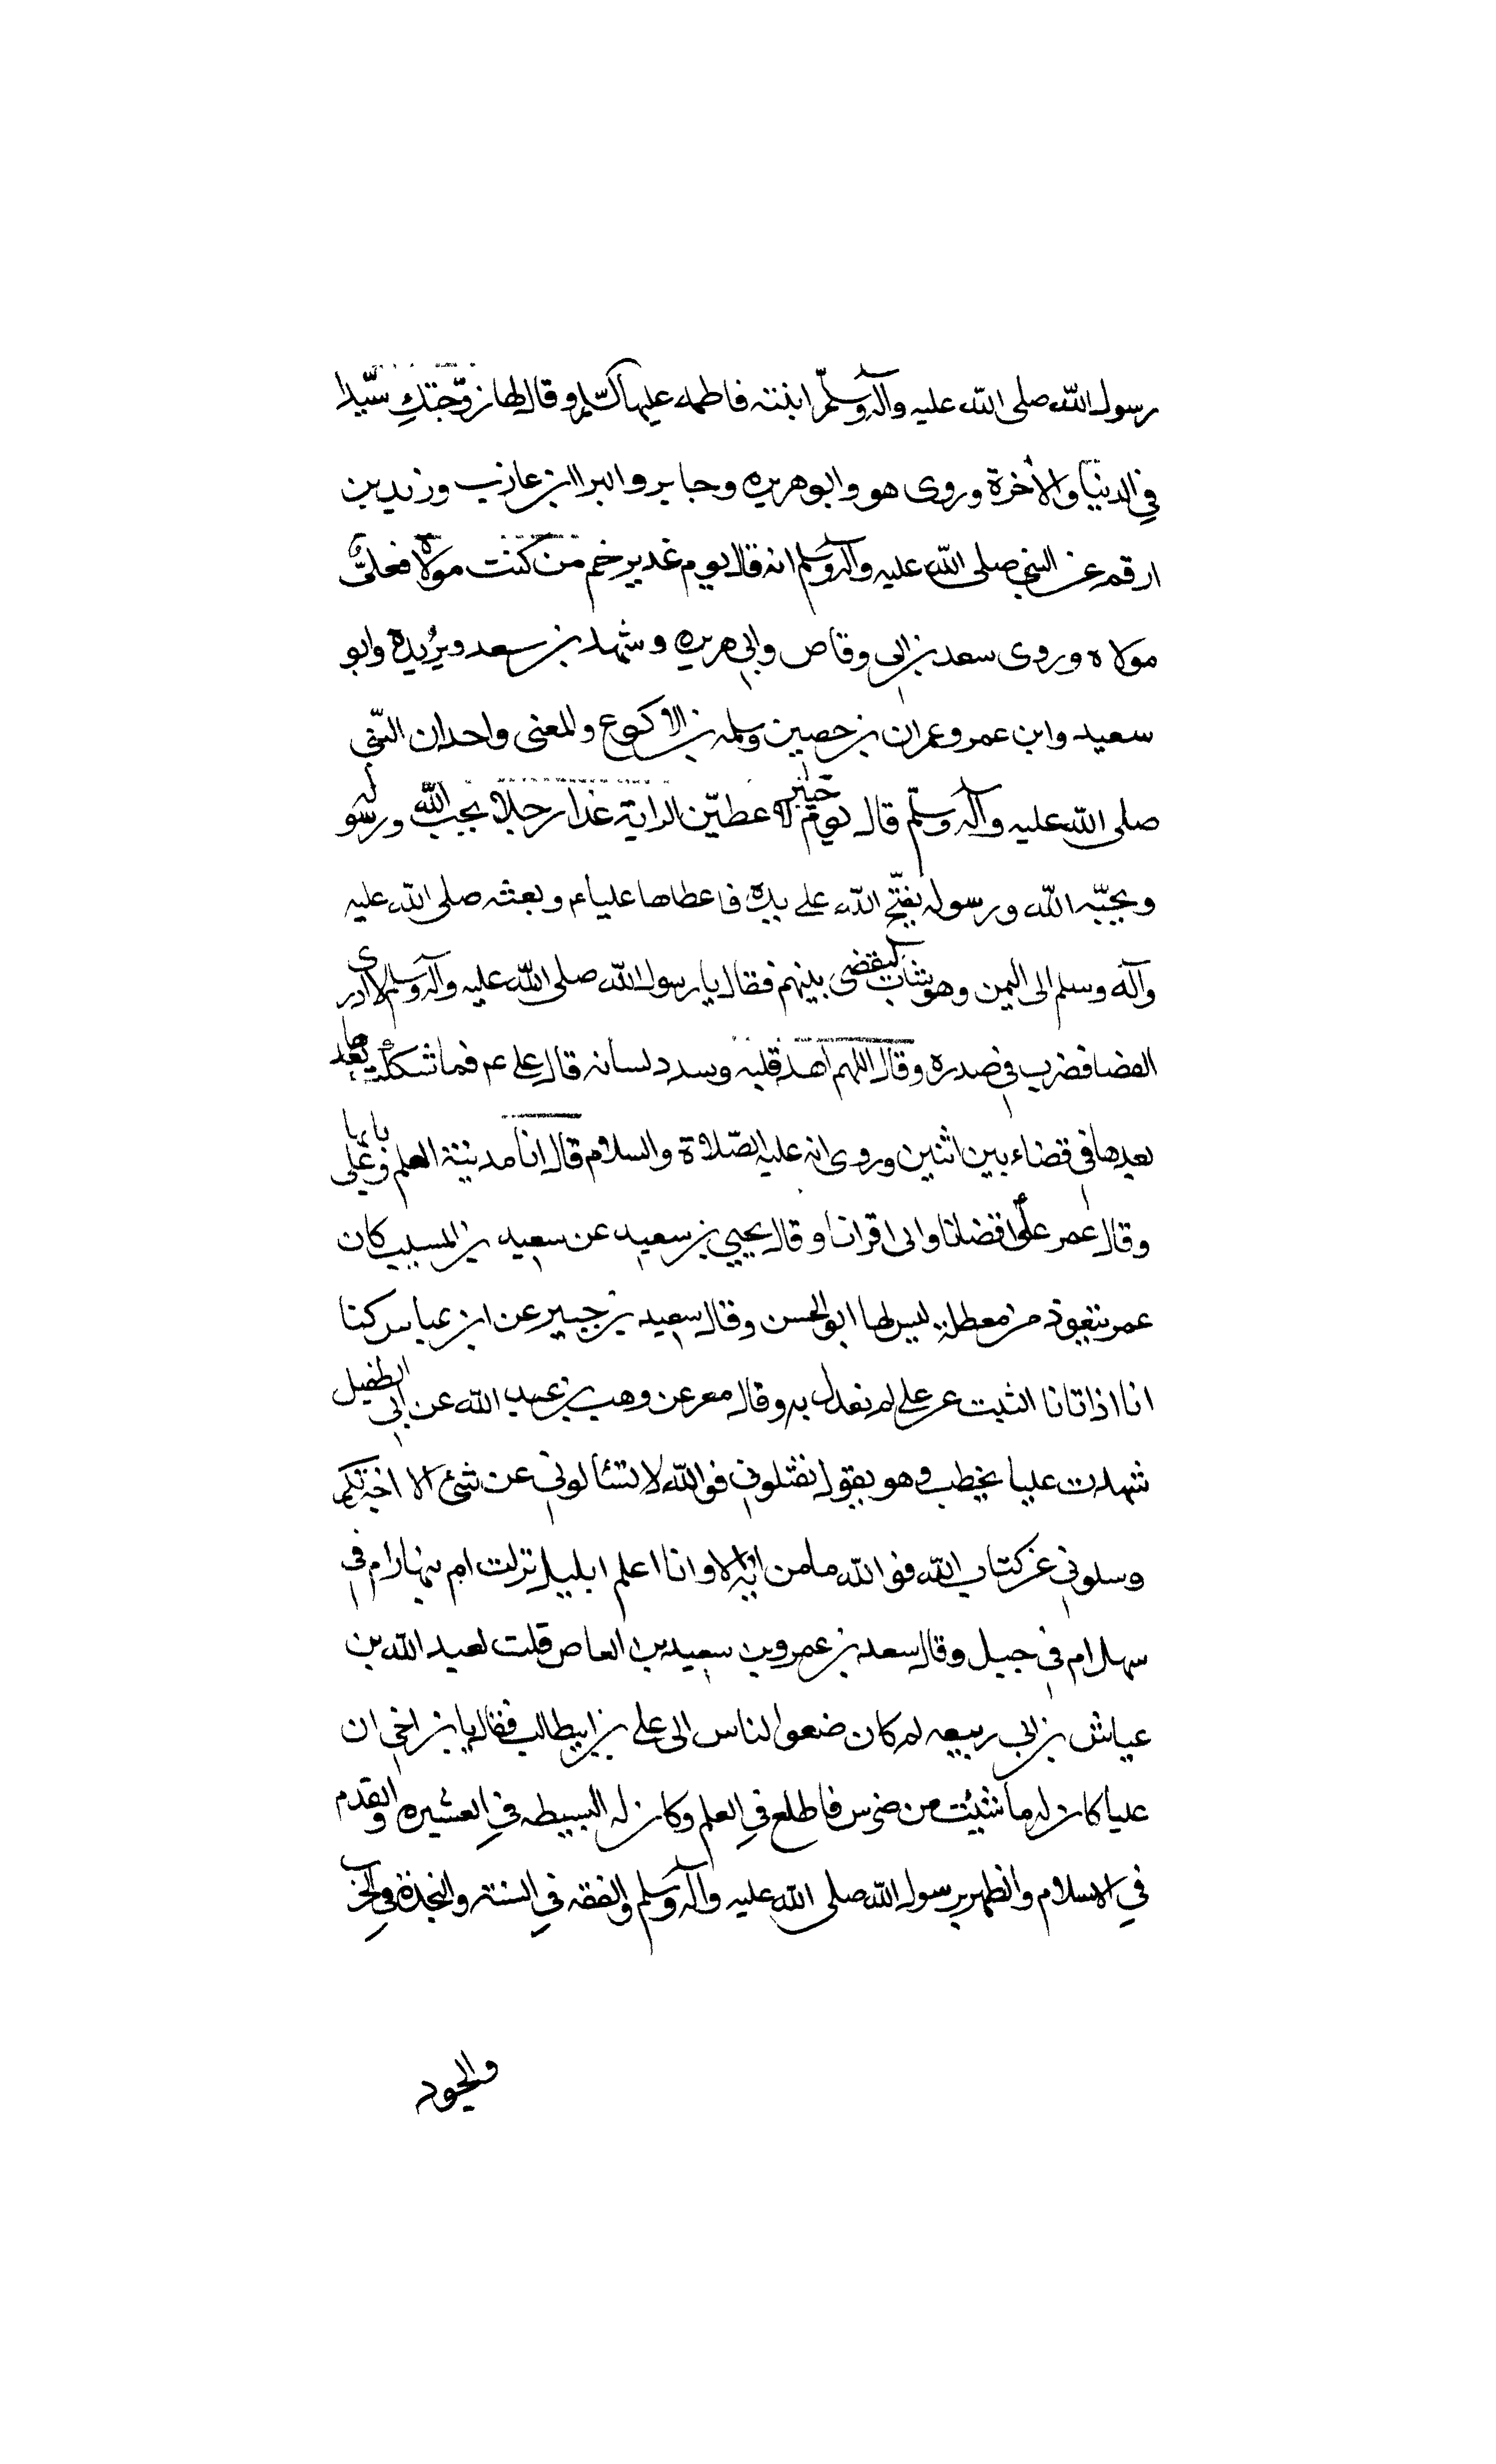 رسول الله صلى الله عليه وآله وسلّم ابنته فاطمة عليها السّلم وقال لها زوّجتكِ سيّدا
في الدنيا والاخرة وروى هو وابو هريره وجابر والبرا ابن عازب وزيد بن
ارقم عن النبي صلى الله عليه وآله وسلم انه قال يوم غدير خم من كنت مولاه فعلىٌّ
مولاه وروى سعد بن ابى وقاص وابي هريره وشهد بن سعد وبُريده وابو
سعيد وابن عمر وعمران بن حصين وسلمه بن الاكوع والمعنى واحدان النّبي
صلى الله عليه وآله وسلّم قال يوم خيبر لاعطيّن الراية غدا رجلا يحب الله ورسوله
ويحبّه الله ورسوله يفتح الله على يده فاعطاها عليا ء م وبعثه صلى الله عليه
وآله وسلم الى اليمن وهو شاب ليقضى بينهم فقال يا رسول الله صلى الله عليه وآله وسلم لا ادرى
القضا فضرب في صدره وقال اللهم اهد قلبه وسدد لسانه قال على عم فما شككت بعدها
بعدها في قضاء بين اثنين وروى انه عليه الصّلاة والسلام قال انا مدينة العلم وعلى بابها
وقال عمر علىٌّ اقضانا وابى اقرانا وقال يحيي بن سعيد عن سعيد بن المسيب كان
عمر يتعوذ من معطلة ليس لها ابو الحسن وقال سعيد بن جبير عن ابن عباس كنا
انا اذا تانا الثبت عن على لم نعدل به وقال معمر عن وهب بن عبد الله عن ابي الطفيل
شهدت عليا يخطب وهو يقول تقتلوني فوالله لا تسئالوني عن شئ الا اخبرتكم
وسلوني عن كتاب الله فوالله ما من اية الا وانا اعلم ابليل نزلت ام بنهار ام في
سهل ام في جبل وقال سعد بن عمرو بن سعيد بن العاص قلت لعبد الله بن
عياش بن ابي ربيعه لم كان ضعوا لناس الى على بن ابيطالب فقال يا بن اخي ان
عليا كان له ما شئت من ضرس فاطلع في العلم وكان له البسيطه في العشيره والقدم
في الاسلام والطهر برسول الله صلى الله عليه وآله وسلم والفقه في السنة والنجدة في الحرب
والجود